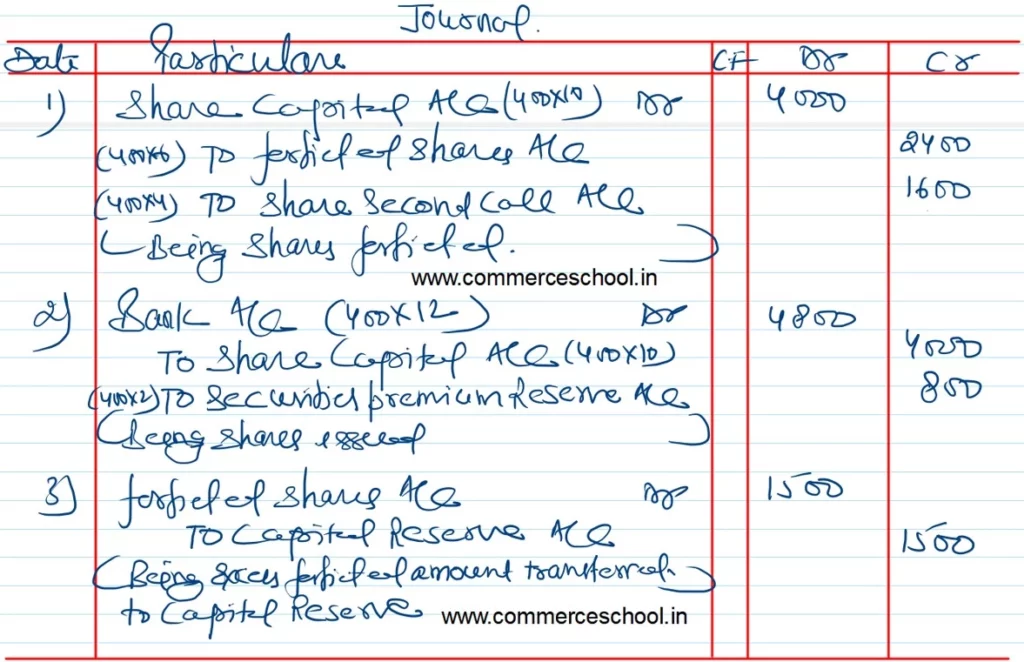 Journal.
Date Particulars CF Dr Cr
1) Share Capital A/c (400x10) Dr 4000
(400x6) To forfieted Shares A/c 2400
(400x4) To Share Second Call A/c 1600
(Being Shares forfieted.)
www.commerceschool.in
2) Bank A/c (400x12) Dr 4800
To Share Capital A/c (400x10) 4000
(400x2) To Securities premium Reserve A/c 800
(Being Shares issued)
3) forfieted Shares A/c Dr 1500
To Capital Reserve A/c 1500
(Being Excess forfieted amount transferred.)
to Capital Reserve www.commerceschool.in